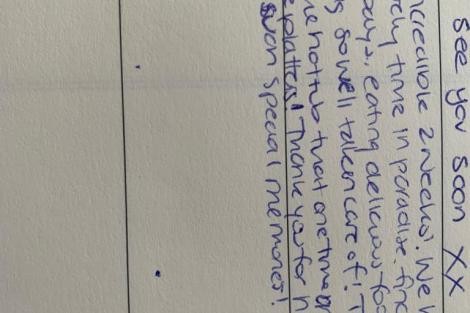 see you soon XX
ncredible 2 weeks! We
time in paradise, fin
days, eating delicious foo
so well taken care of! T
he hot tub that one time
platters! Thank you for
such special memories!